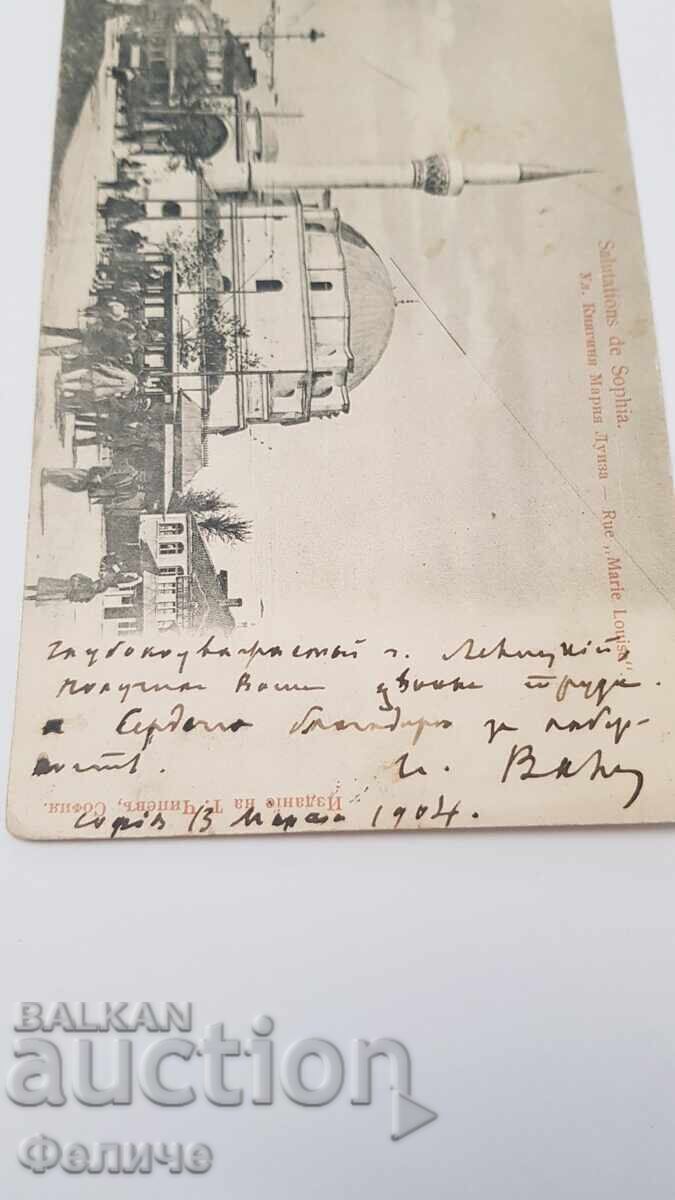 Salutations de Sophia.
Ул. Княгиня Мария Луиза — Rue „Marie Louisa"
Глубокоуважаемый г. Левицкій,
получилъ Ваши труда.
Сердечно благодарю за
И.
Софія 13 Марта 1904.
Изданіе на Т. Чипевъ, София.
BALKAN
auction
Феличе